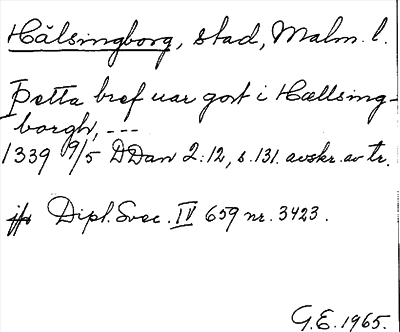 Hälsingborg, stad, Malm. l.
Þetta bref uar gort i Hællsing-
borgh, ---
1339 9/5 DDan 2:12, s. 131. avskr. av tr.
jfr Dipl. Svec. IV 659 nr. 3423.
G.E. 1965.